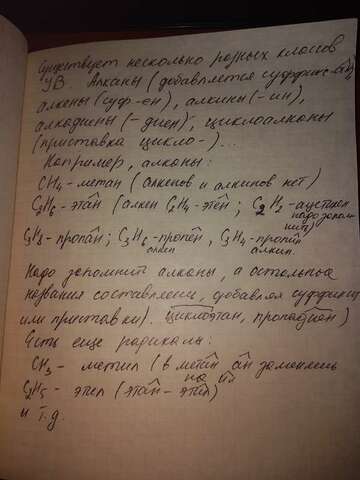 Существует несколько разных класов
УВ. Алканы (добавляется суффикс -ан),
алкены (суф -ен), алкины (-ин),
алкадиены (-диен), циклоалканы
(приставка цикло-)...
Например, алканы:
CH4 - метан (алкенов и алкинов нет)
C2H6 - этан (алкен C2H4 - этен; C2H2 - ацетилен
надо запом
нить)
C3H8 - пропан; C3H6 - пропен, C3H4 - пропин
алкен алкин
Надо запомнить алканы, а остальные
названия составляеш, добавляя суффиксы
или приставки). циклоэтан, пропадиен)
Есть еще радикалы:
CH3 - метил (в метан ан заменяеш
на ил
C2H5 - этил (этан - этил)
и т.д.